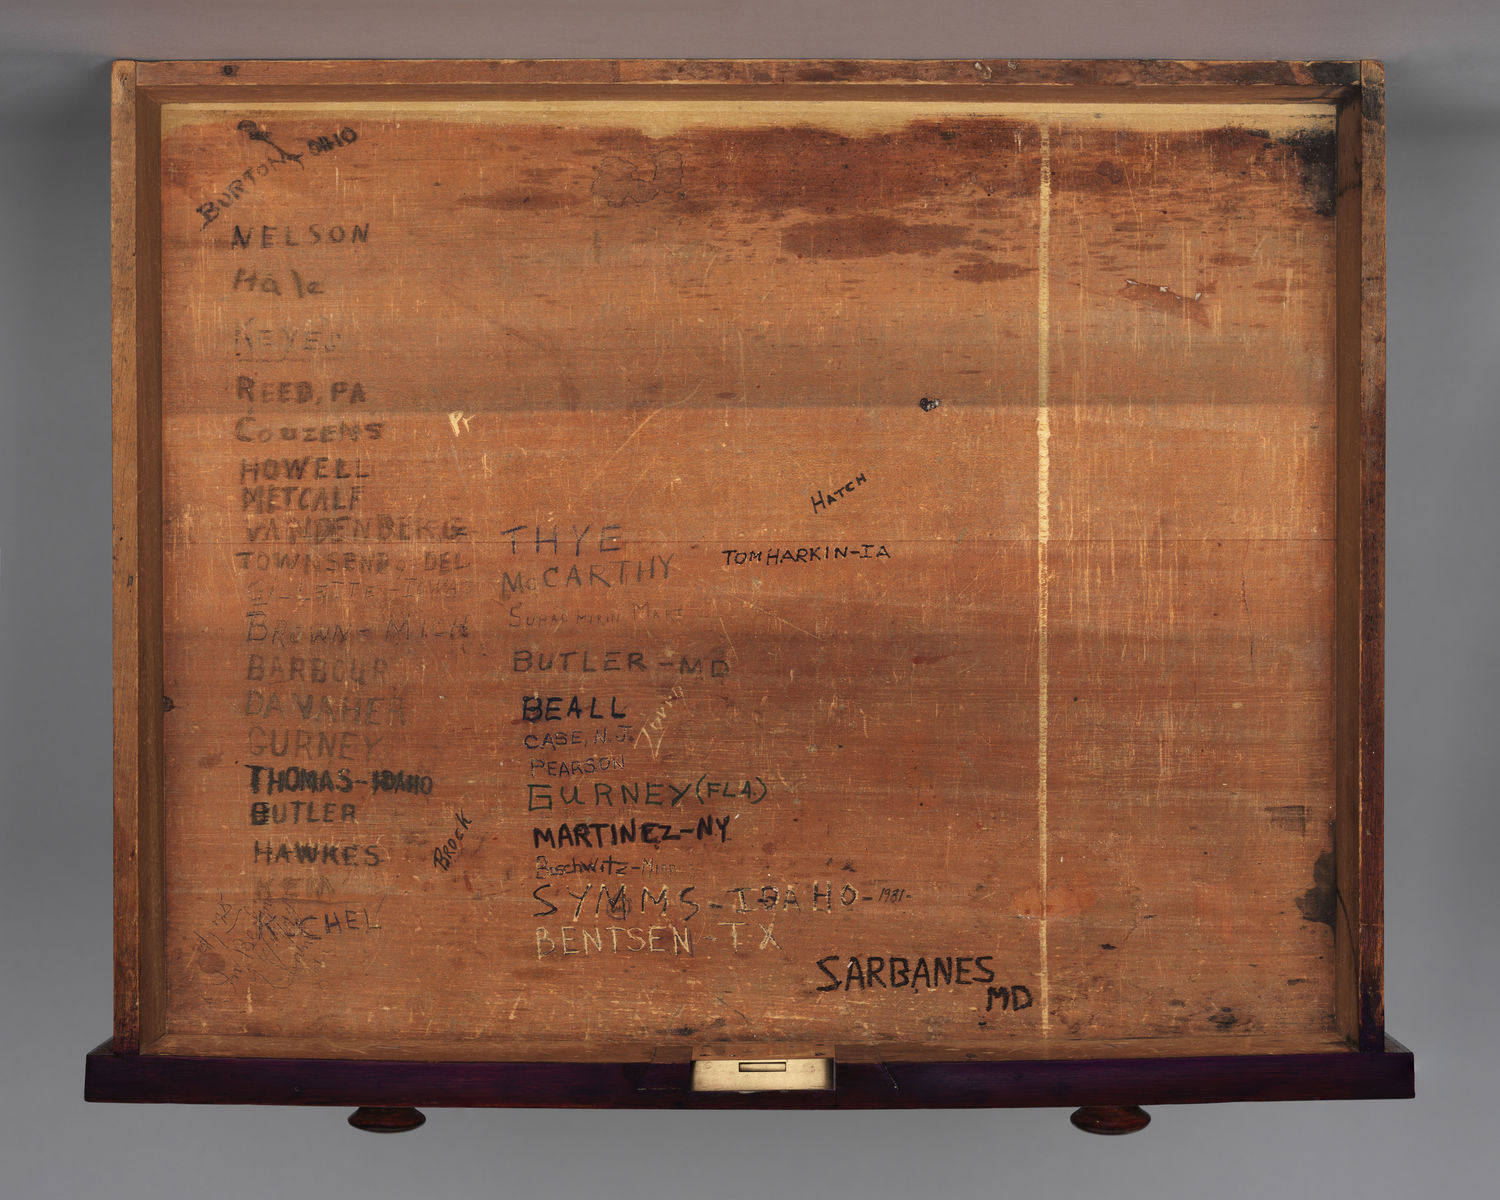 BURTON, OHIO
NELSON
Hale
KEYES
REED, PA
COUZENS
HOWELL
METCALF
VANDENBERG
TOWNSEND, DEL
BROWN - MICH
BARBOUR
DANAHER
GURNEY
THOMAS-IDAHO
BUTLER
HAWKES
KEM
KUCHEL
Pr
BROCK
THYE
McCARTHY
BUTLER-MD
BEALL
CASE, N.J.
PEARSON
GURNEY (FLA)
MARTINEZ-NY
SYMMS-IDAHO-1981-
BENTSEN-TX
HATCH
TOM HARKIN-IA
SARBANES
MD